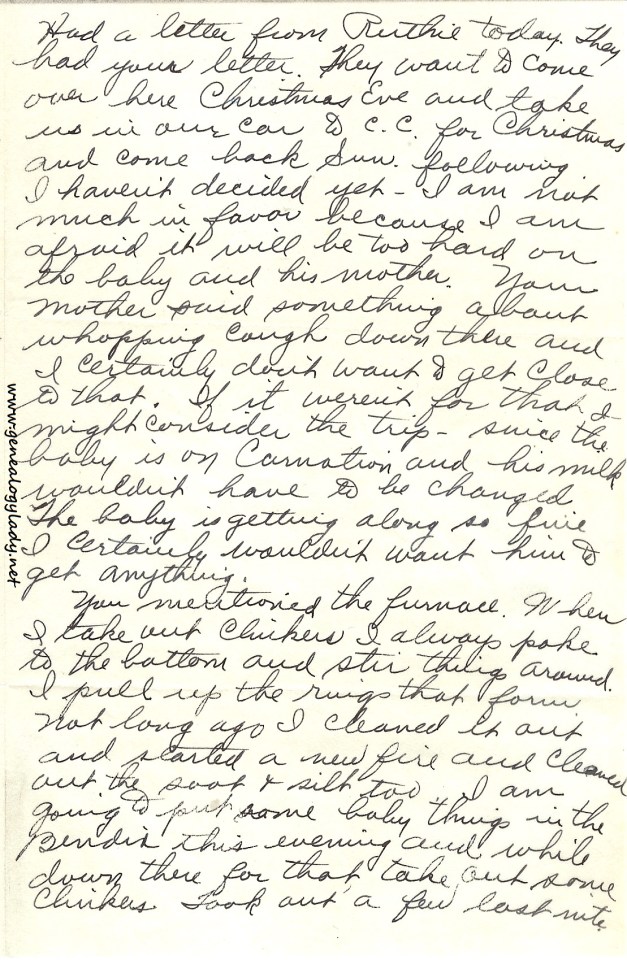 Had a letter from Ruthie today. They
had your letter. They want to come
over here Christmas Eve and take
us in our car to C.C. for Christmas
and come back Sun. following
I haven't decided yet - I am not
much in favor because I am
afraid it will be too hard on
the baby and his mother. Your
mother said something about
whopping cough down there and
I certainly don't want to get close
to that. If it weren't for that I
might consider the trip - since the
baby is on Carnation and his milk
wouldn't have to be changed
The baby is getting along so fine
I certainly wouldn't want him to
get anything.
You mentioned the furnace. When
I take out clinkers I always poke
to the bottom and stir things around.
I pull up the rings that form
Not long ago I cleaned it out
and started a new fire and cleaned
out the soot & silt too. I am
going to put some baby things in the
Bendix this evening and while
down there for that take out some
clinkers. Took out a few last nite.
www.genealogylady.net